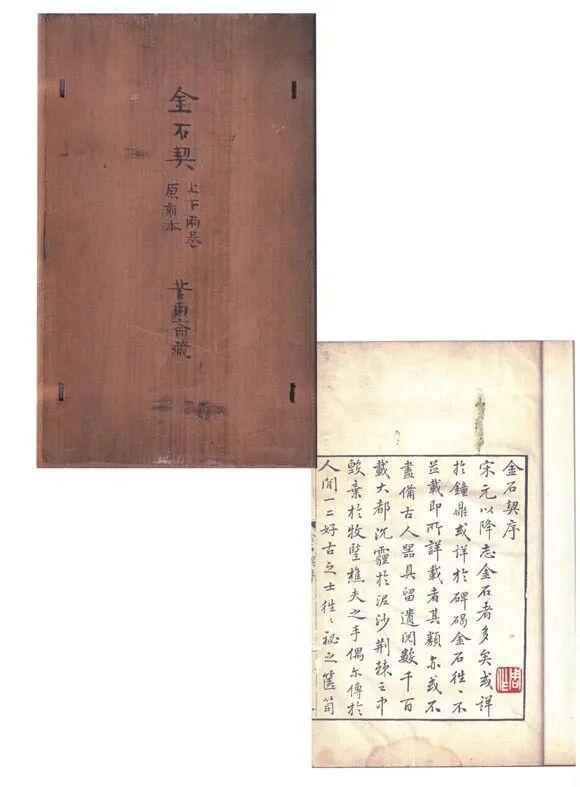 金石契
上下兩卷
原刻本
苦雨藏
金石契序
宋元以降志金石者多矣或詳
於鐘鼎或詳於碑碣金石徃〻不
並載即所詳載者其類亦或不
盡備古人器具留遺閱數千百
載大都沉霾於泥沙荆棘之中
毀棄於牧豎樵夫之手偶尓傳於
人間一二好古之士徃〻祕之篋笥
金石契序